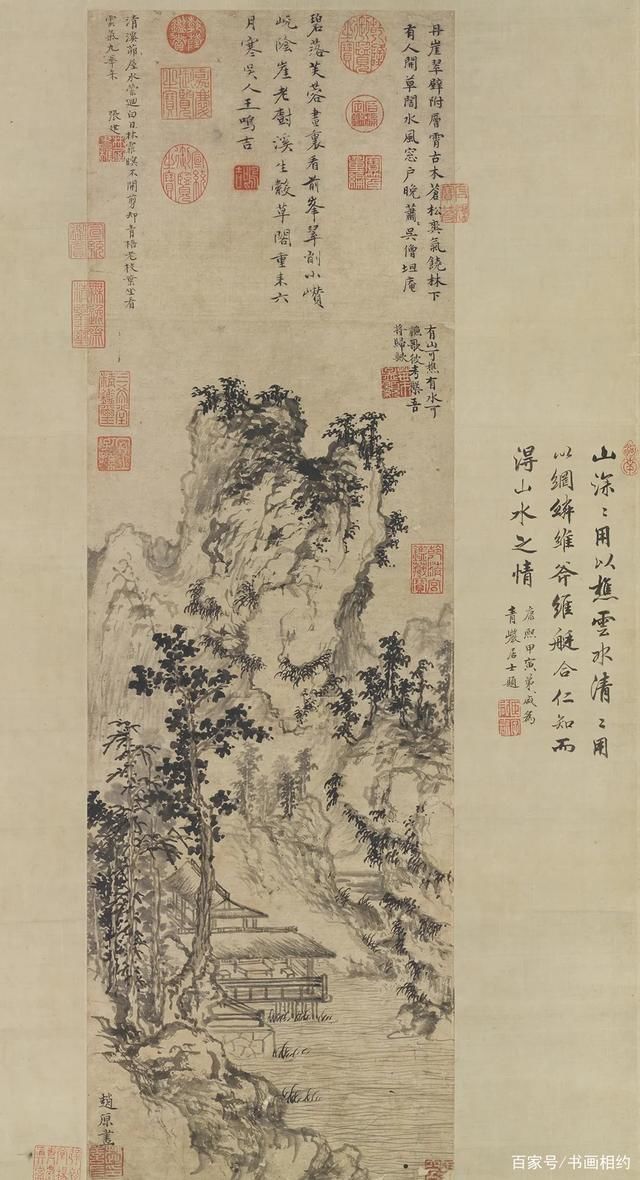 山深〻用以樵雲水清〻用
以網鱗維斧維艇合仁知而
得山水之情
康熙甲寅
青巖居士題
丹崖翠壁附層霄古木蒼松爽氣饒林下
有人開草閣水風窓戶晚蕭〻吳僧坦庵
有山可樵有水可
漁歌彼考槃吾
將歸歟
碧落芙蓉畫裏看前峯翠削小巑
岏陰崖老樹溪生縠草閣重來六
月寒吳人王鳴吉
清溪茆屋水縈迴白日林霏暝不開剪却青梧老枝葉坐看
雲氣九華來
趙原畫
百家号/书画相约